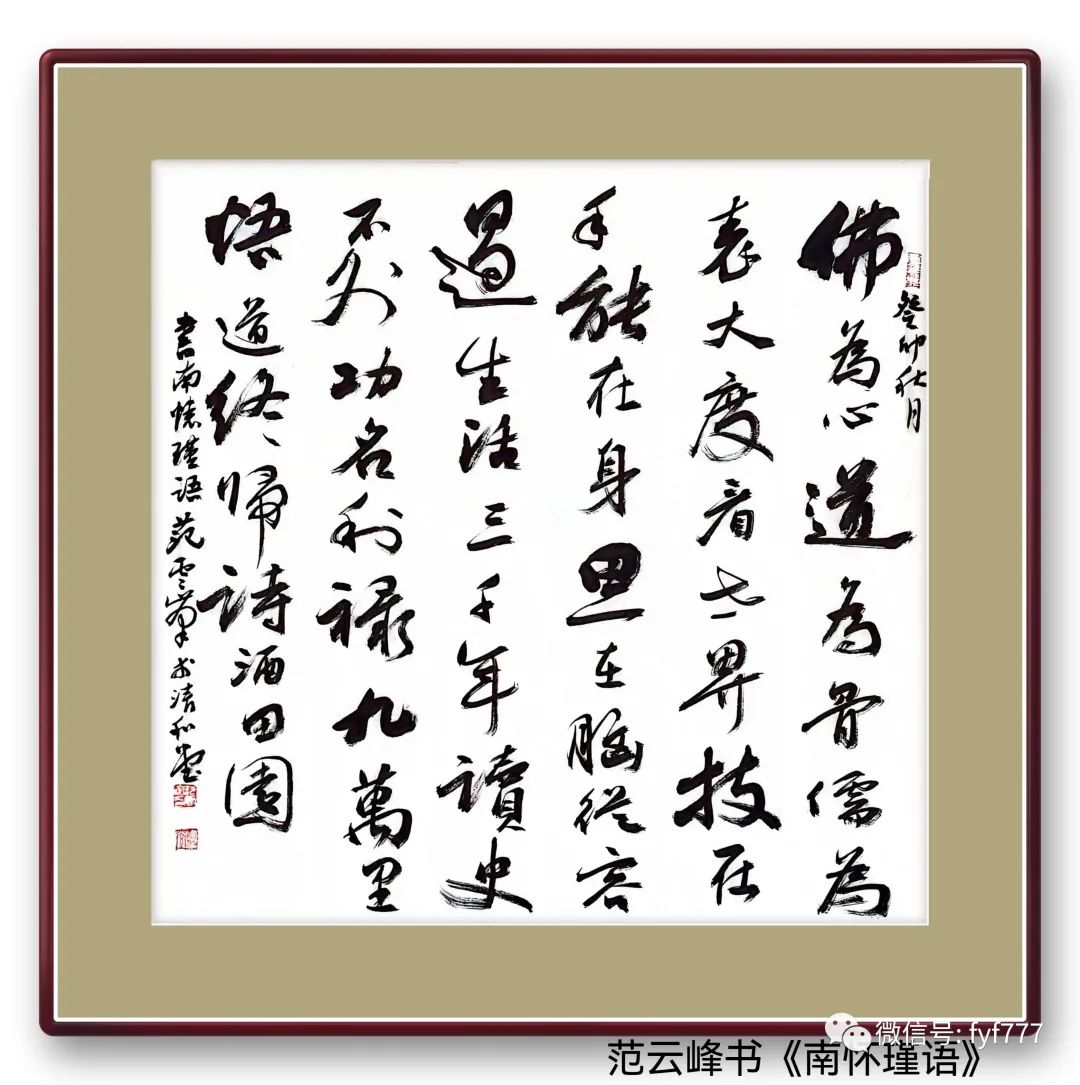 癸卯秋月
佛為心道為骨儒為
表大度看世界技在
手能在身思在腦從容
過生活三千年讀史
不外功名利祿九萬里
悟道終歸詩酒田園
書南懷瑾語范雲峯书清和堂
微信号: fyf777
范云峰书《南怀瑾语》